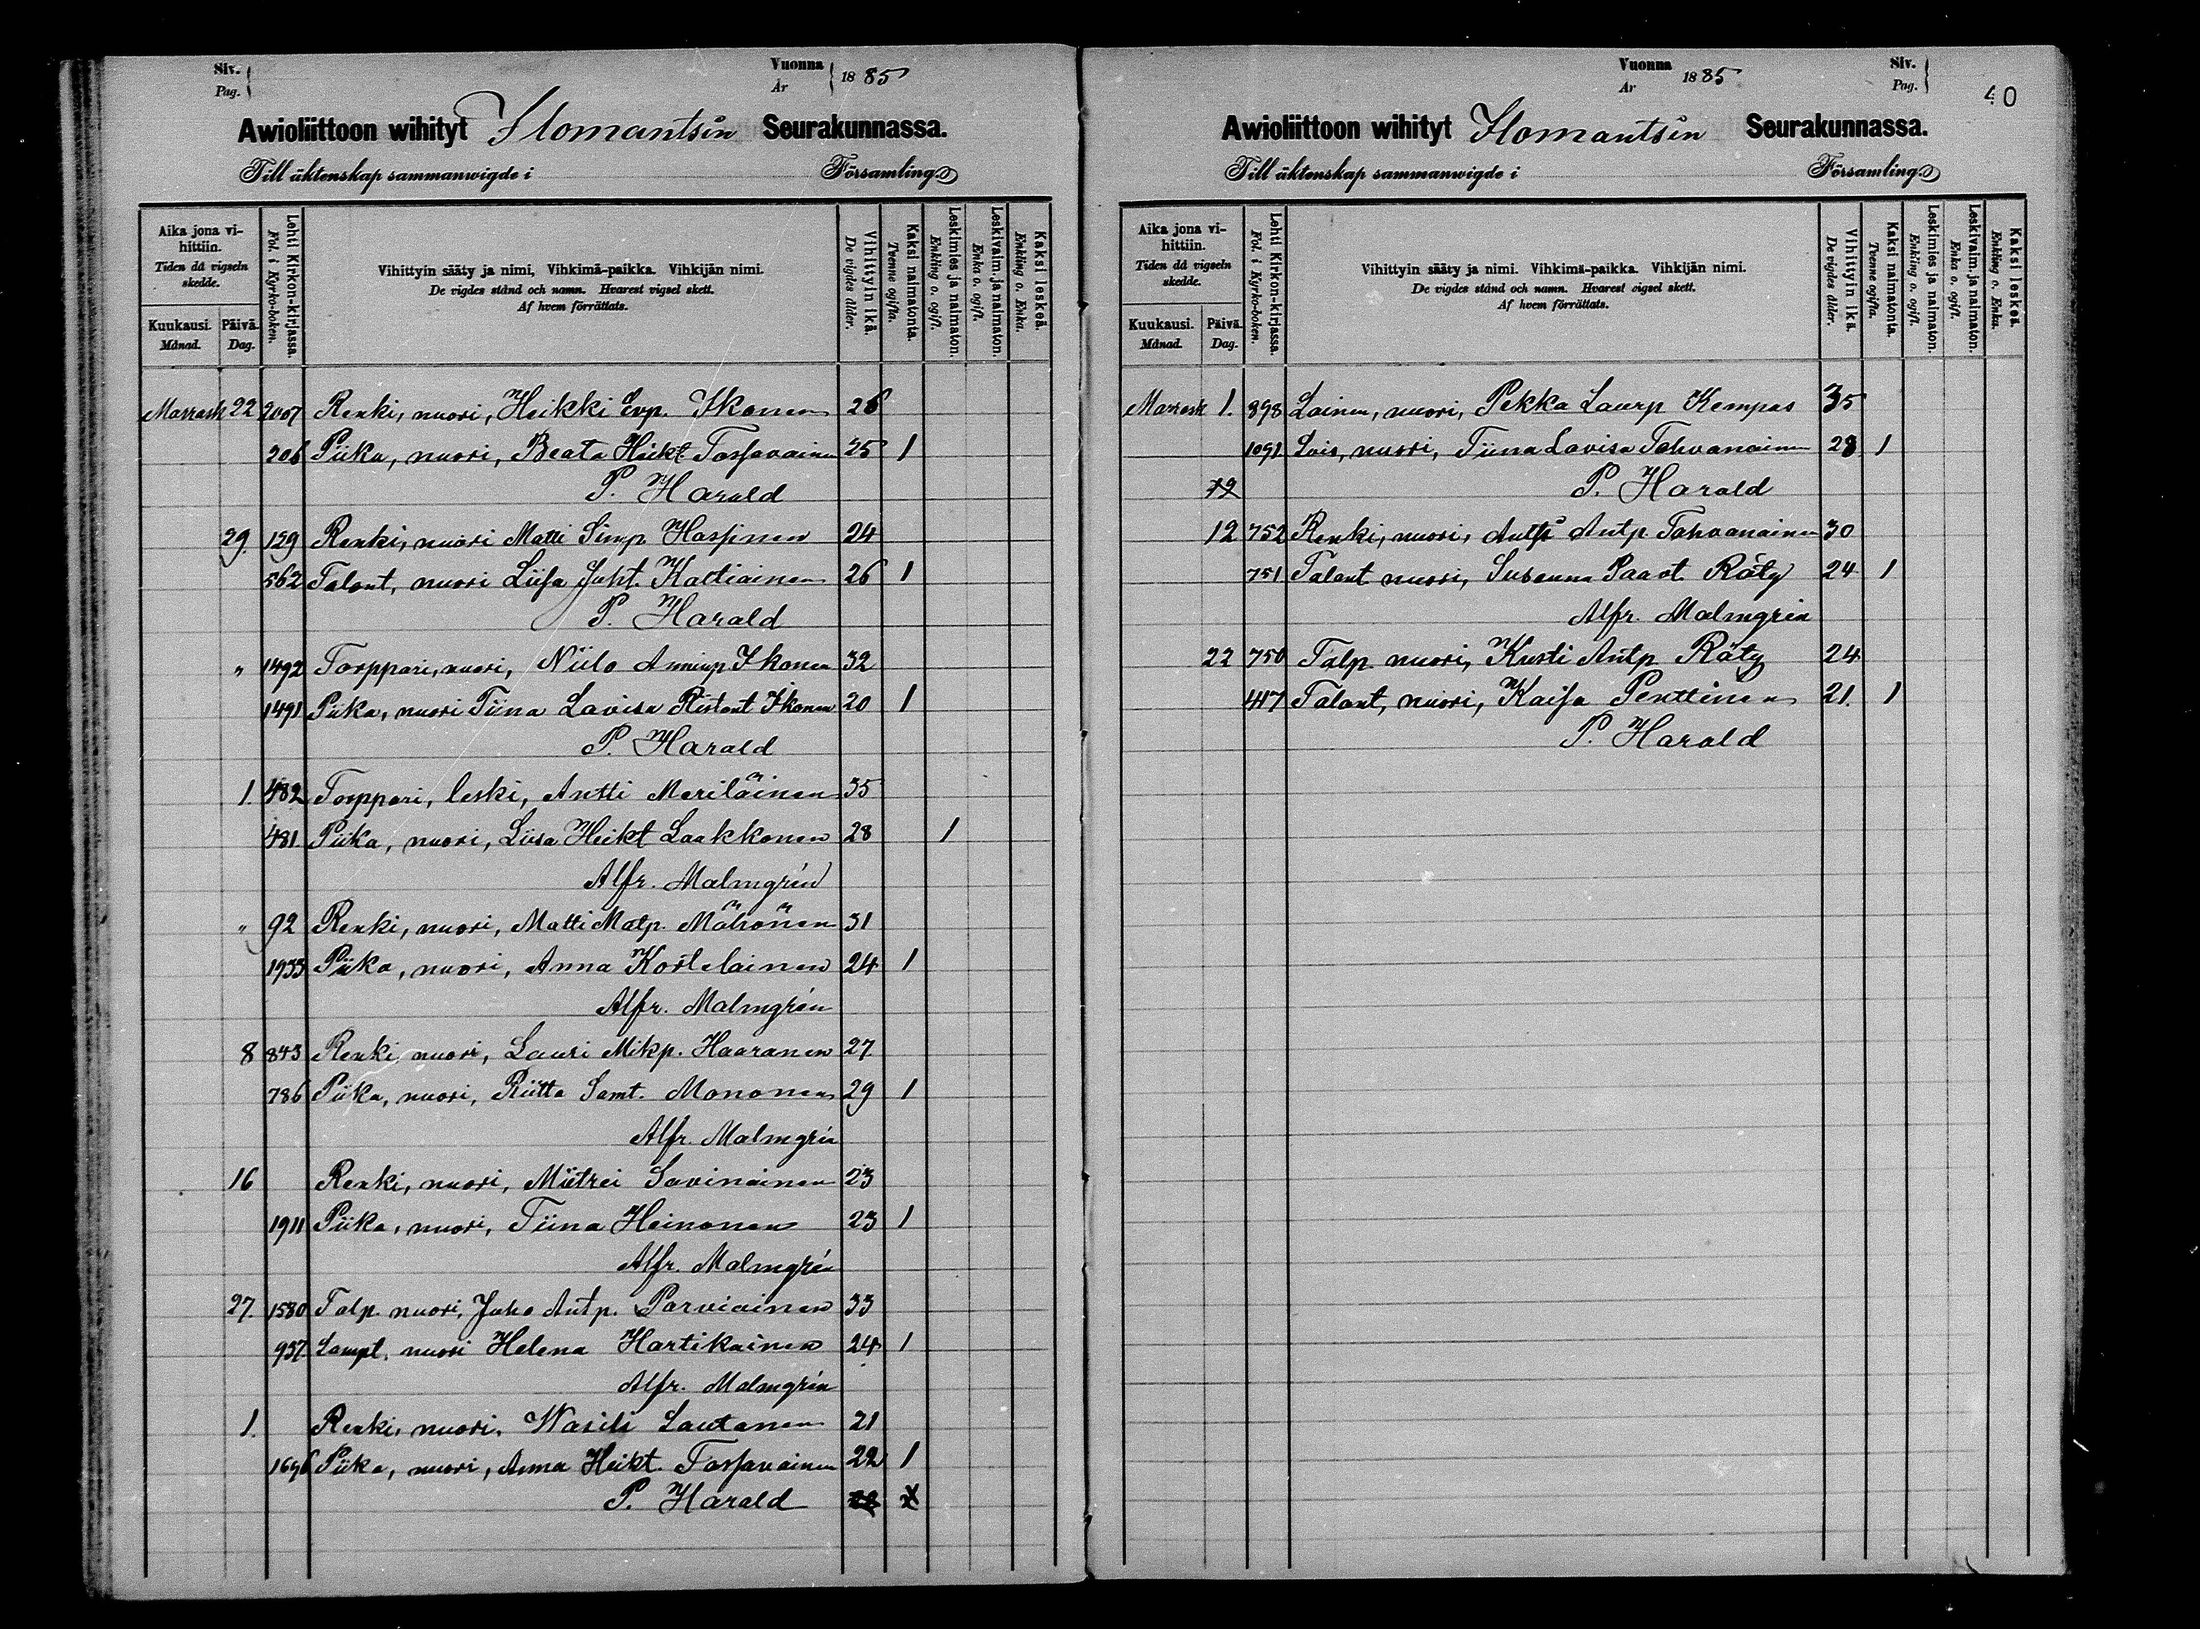 Siv. Vuonna 1885
Pag. År
Awioliittoon wihityt Ilomantsin Seurakunnassa.
Till äktenskap sammanwigde i Församling
Aika jona vihittiin. Tiden då vigseln skedde.
Kuukausi. Månad. Päivä. Dag.
Lehti Kirkon-kirjassa. Fol. i Kyrko-boken.
Vihittyin sääty ja nimi, Vihkimä-paikka. Vihkijän nimi.
De vigdes stånd och namn. Hvarest vigsel skett.
Af hvem förrättats.
Vihittyin ikä. De vigdes ålder.
Kaksi naimatonta. Tvenne ogifta.
Leskimies ja naimaton. Enkling o. ogift.
Leskivaim. ja naimaton. Enka o. ogift.
Kaksi leskeä. Enkling o. Enka.
Marrask 22 2007 Renki, nuori, Heikki Evp. Ikonen 26
206 Piika, nuori, Beata Heikt Tarfavainen 25 1
P. Harald
29. 159 Renki, nuori Matti Simp Haspinen 24
562 Talont, nuori Liisa Juht. Kaltiainen 26 1
P. Harald
" 1492 Torppari, nuori, Niilo Ikonen 32
1491 Piika, nuori Tiina Lavisa Ristont Ikonen 20 1
P. Harald
1. 482 Torppari, leski, Antti Meriläinen 35
481 Piika, nuori, Liisa Heikt Laakkonen 28 1
Alfr. Malmgrén
" 92 Renki, nuori, Matti Matp. Mähönen 31
1933 Piika, nuori, Anna Kortelainen 24 1
Alfr. Malmgrén
8 843 Renki nuori, Lauri Mikp. Haaranen 27
786 Piika, nuori, Riitta Samt. Mononen 29 1
Alfr. Malmgrén
16 Renki, nuori, Miitrei Savinainen 23
1911 Piika, nuori, Tiina Heinonen 23 1
Alfr. Malmgrén
27. 1580 Talp. nuori, Juho Antp. Parviainen 33
937 Lampt. nuori Helena Hartikainen 24 1
Alfr. Malmgrén
1. Renki, nuori, Wasili Lautanen 21
1696 Piika, nuori, Anna Heikt. Tarfavainen 22 1
P. Harald
Vuonna 1885 Siv.
År Pag.
40
Awioliittoon wihityt Ilomantsin Seurakunnassa.
Till äktenskap sammanwigde i Församling
Aika jona vihittiin. Tiden då vigseln skedde.
Kuukausi. Månad. Päivä. Dag.
Lehti Kirkon-kirjassa. Fol. i Kyrko-boken.
Vihittyin sääty ja nimi. Vihkimä-paikka. Vihkijän nimi.
De vigdes stånd och namn. Hvarest vigsel skett.
Af hvem förrättats.
Vihittyin ikä. De vigdes ålder.
Kaksi naimatonta. Tvenne ogifta.
Leskimies ja naimaton. Enkling o. ogift.
Leskivaim. ja naimaton. Enka o. ogift.
Kaksi leskeä. Enkling o. Enka.
Marrask 1. 898 Loinen, nuori, Pekka Laurp Kempas 35
1091 Lois, nuori, Tiina Lovisa Tahvanainen 28 1
P. Harald
12 752 Renki, nuori, Antti Antp Tahvanainen 30
751 Talont nuori, Susanna Paavt Räty 24 1
Alfr. Malmgrén
22 750 Talp nuori, Kusti Antp Räty 24
417 Talont, nuori, Kaisa Penttinen 21. 1
P. Harald